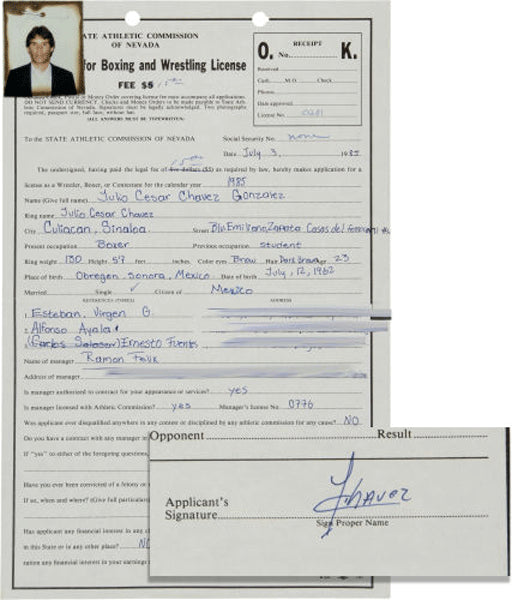 STATE ATHLETIC COMMISSION
OF NEVADA
for Boxing and Wrestling License
FEE $5
RECEIPT
O. No. K.
Received
Cash M.O. Check
Photos
Date approved
License No.
DO NOT SEND CURRENCY. Checks and Money Orders to be made payable to State Athletic Commission of Nevada. Signatures must be legally acknowledged. Two photographs required, passport size, full face, without hat.
(ALL ANSWERS MUST BE TYPEWRITTEN)
To the STATE ATHLETIC COMMISSION OF NEVADA Social Security No. none
Date July 3, 1985
The undersigned, having paid the legal fee of five dollars ($5) as required by law, hereby makes application for a
license as a Wrestler, Boxer, or Contestant for the calendar year 1985
Name (Give full name) Julio Cesar Chavez Gonzalez
Ring name Julio Cesar Chavez
City Culiacan, Sinaloa Street Blv. Emiliano Zapata Casas del
Present occupation Boxer Previous occupation student
Ring weight 130 Height 5'7 feet inches Color eyes Brow Hair Dark Brow age 23
Place of birth Obregon, Sonora, Mexico Date of birth July, 12, 1962
Married Single ✓ Citizen of Mexico
REFERENCES (THREE) ADDRESS
1. Esteban, Virgen G.
2. Alfonso Ayala
3. (Carlos Salazar) Ernesto Fuentes
Name of manager Ramon Felix
Address of manager
Is manager authorized to contract for your appearance or services? yes
Is manager licensed with Athletic Commission? yes Manager's license No. 0776
Was applicant ever disqualified anywhere in any contest or disciplined by any athletic commission for any cause? NO
Do you have a contract with any manager
If "yes" to either of the foregoing questions,
Have you ever been convicted of a felony or
If so, when and where? (Give full particulars)
Has applicant any financial interest in any
in this State or in any other place?
ration any financial interest in your earnings
Opponent Result
Applicant's
Signature Chavez
Sign Proper Name